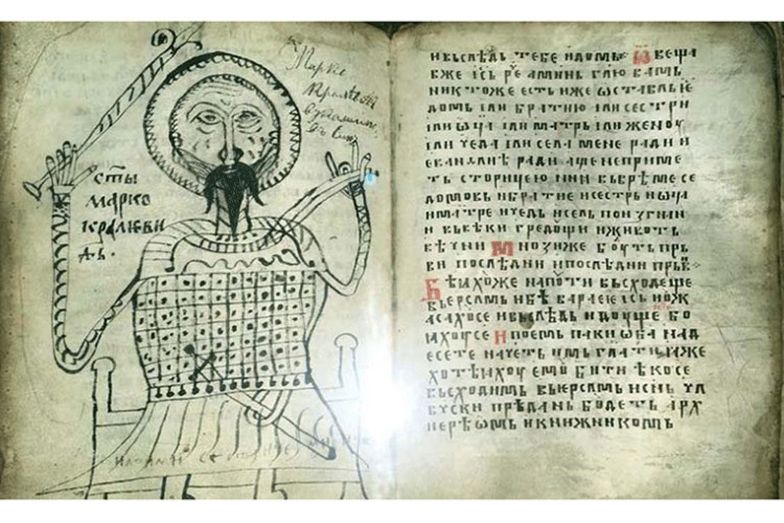 с҃ты
марко
кралеви
ть.
Марко
и вьслѣдь тебе идомь Ѿвеща
вже і҃сь рⷱе аминь гл҃ю вамь
никтоже есть иже ѡставль е
домь или братию или сестри
или ѡц҃а или матрь или женоу
или чеда или села мене ради и
еваⷩ҃лиѣ ради аще не приме
ть сторицею н҃ни вь врѣме се
домовь и братие и сестрь и ѡц҃а
и матре и чедь и сель по изгнани
и вь вѣки гредощи животь
вѣчни Мнози же боуть прь
ви последни и последни прьв
Бѣхоже на поути вьсходеще
вь ерслмь и бѣ вараее і҃сь и оуж
асахосе и вьслѣдь идоуще бо
ꙗхоусе И поемь паки ѡба на д
есете начеть имь гл҃ати иже
хотѣхоу емоу бити ѣко се
вьсходимь вь ерслмь и сн҃ь чл
прѣдань боудеть арх
иереѡмь и книжникомь